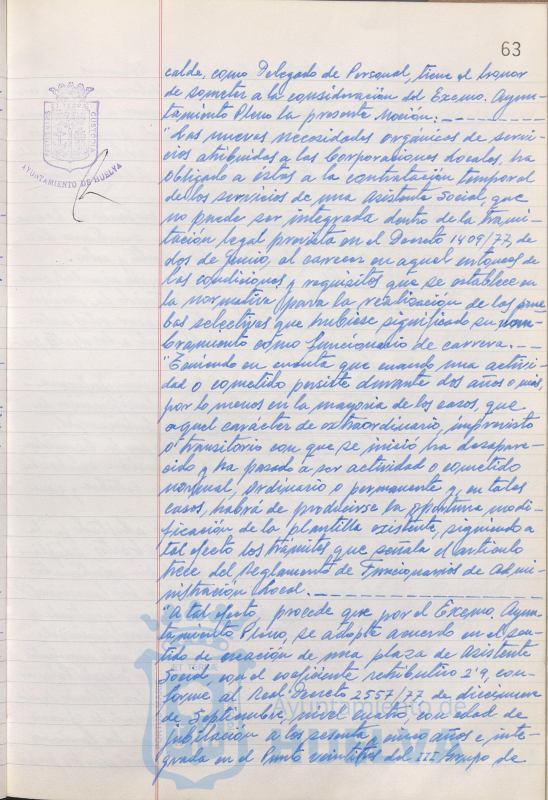 63
calde, como Delegado de Personal, tiene el honor
de someter a la consideración del Excmo. Ayun-
tamiento Pleno la presente Moción:
"Las nuevas necesidades orgánicas de servi-
cios atribuidas a las Corporaciones Locales, ha
obligado a éstas a la contratación temporal
de los servicios de una Asistente Social, que
no puede ser integrada dentro de la trami-
tación legal prevista en el Decreto 1409/77, de
dos de Junio, al carecer en aquel entonces de
las condiciones y requisitos que se establece en
la normativa para la realización de las prue-
bas selectivas que hubiese significado su nom-
bramiento como funcionario de carrera.
"Teniendo en cuenta que cuando una activi-
dad o cometido persiste durante dos años o más,
por lo menos en la mayoria de los casos, que
aquel carácter de extraordinario, imprevisto
o transitorio con que se inició ha desapare-
cido y ha pasado a ser actividad o cometido
normal, ordinario o permanente y, en tales
casos, habrá de producirse la oportuna modi-
ficación de la plantilla existente, siguiendo a
tal efecto los trámites que señala el artículo
trece del Reglamento de Funcionarios de Admi-
nistración Local.
"A tal efecto procede que por el Excmo. Ayun-
tamiento Pleno, se adopte acuerdo en el sen-
tido de creación de una plaza de Asistente
Social, con el coeficiente retributivo 2'9, con-
forme al Real Decreto 2557/77 de diecinueve
de Septiembre, nivel cuatro, con edad de
jubilación a los sesenta y cinco años e inte-
grada en el Punto veintitres del III Grupo de
AYUNTAMIENTO DE HUELVA
Ayuntamiento de